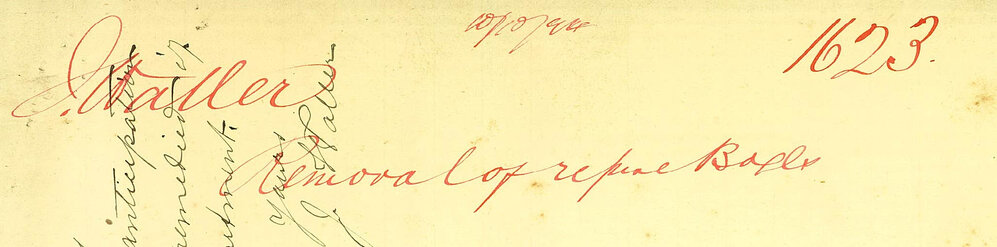 1623.
J. Waller
Removal of refuse Boxes
anticipation
remedied if
Yours
J. Waller